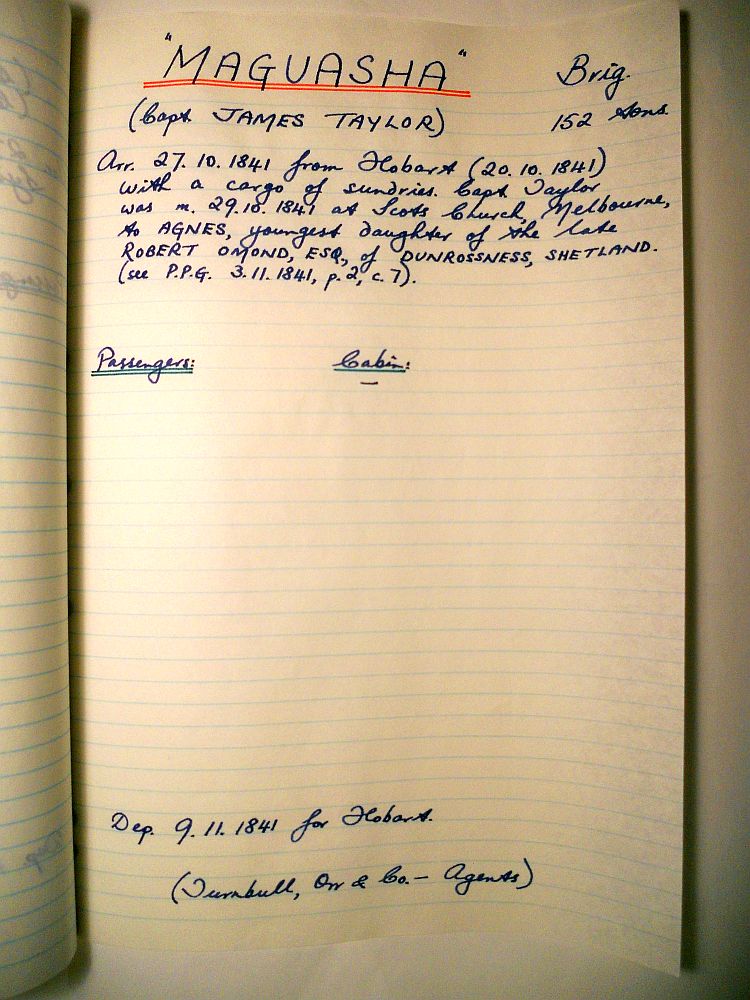 "MAGUASHA" Brig.
(Capt. JAMES TAYLOR) 152 tons.
Arr. 27.10.1841 from Hobart (20.10.1841)
with a cargo of sundries. Capt Taylor
was m. 29.10.1841 at Scots Church, Melbourne,
to AGNES, youngest daughter of the late
ROBERT OMOND, ESQ., of DUNROSSNESS, SHETLAND.
(see P.P.G. 3.11.1841, p.2, c.7).
Passengers: Cabin:
—
Dep. 9.11.1841 for Hobart.
(Turnbull, Orr & Co. — Agents)